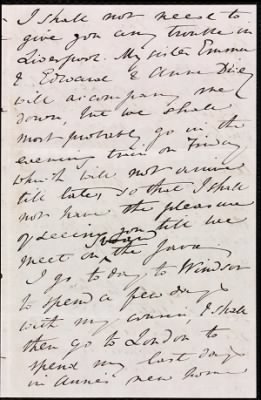 I shall not need to
give you any trouble in
Liverpool. My sister Emma
& Edward & Anne Dicey
will accompany me
down, but we shall
most probably go in the
evening train on Friday
which will not arrive
till late, so that I shall
not have the pleasure
of seeing you till we
meet on the Java
I go to day to Windsor
to spend a few days
with my cousin, & shall
then go to London to
spend my last days
in Anne's new home